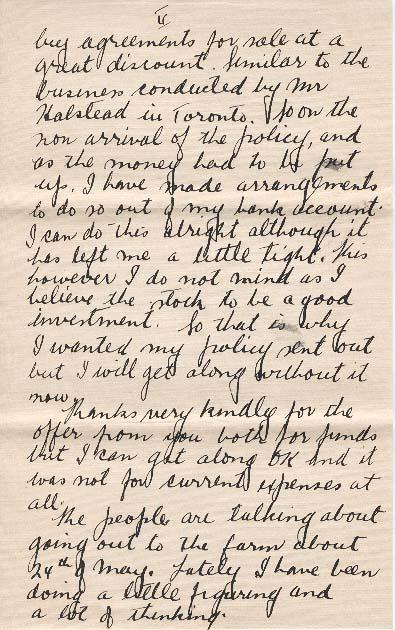 IV
buy agreements for sale at a
great discount. Similar to the
business conducted by Mr
Halstead in Toronto. So on the
non arrival of the policy, and
as the money had to be put
up, I have made arrangements
to do so out of my bank account.
I can do this alright although it
has left me a little tight. This
however I do not mind as I
believe the stock to be a good
investment. So that is why
I wanted my policy sent out
but I will get along without it
now.
Thanks very kindly for the
offer from you both for funds
but I can get along OK and it
was not for current expenses at
all.
The people are talking about
going out to the farm about
24th of May. Lately I have been
doing a little figuring and
a lot of thinking.